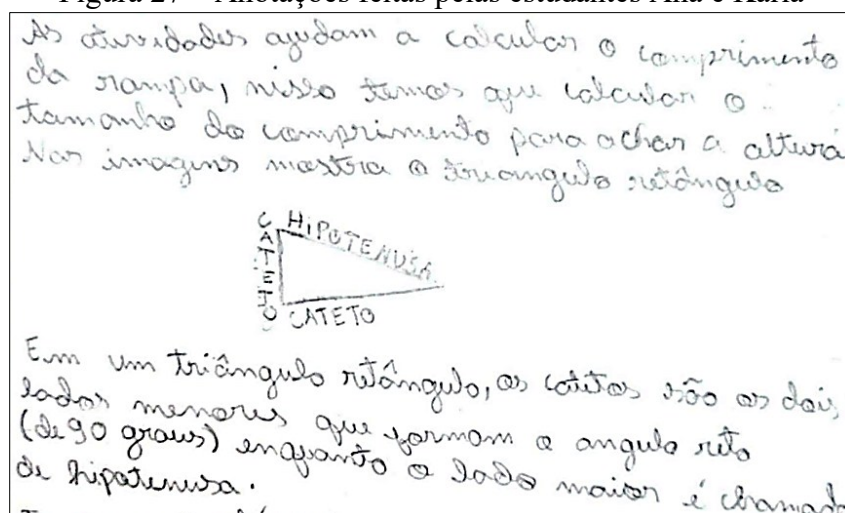 Figura 27 – Anotações feitas pelas estudantes Ana e Karla
As atividades ajudam a calcular o comprimento
da rampa, nisso temos que calcular o
tamanho do comprimento para achar a altura
Nas imagens mostra o triangulo retângulo
CATETO
HIPOTENUSA
CATETO
Em um triângulo retângulo, os catetos são os dois
lados menores que formam o angulo reto
(de 90 graus) enquanto o lado maior é chamado
de hipotenusa.